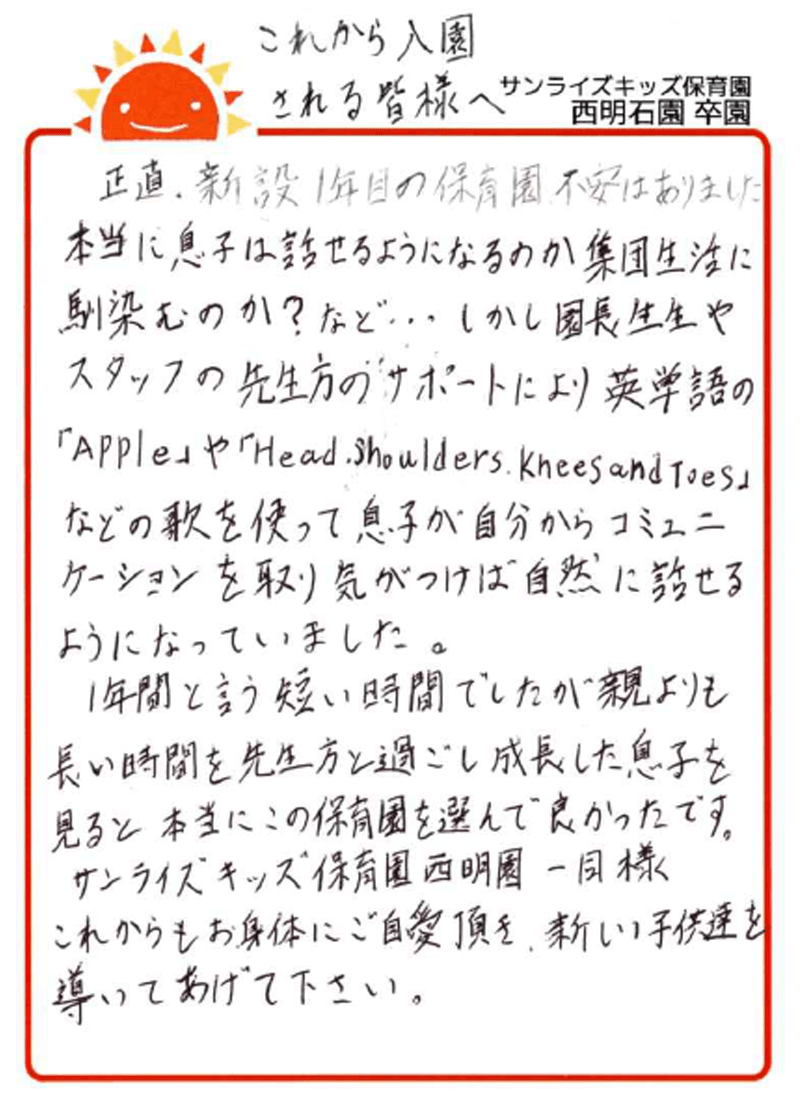 これから入園
される皆様へ
サンライズキッズ保育園
西明石園 卒園
正直、新設1年目の保育園、不安はありました
本当に息子は話せるようになるのか集団生活に
馴染むのか?など…しかし園長生生や
スタッフの先生方のサポートにより英単語の
「Apple」や「Head.Shoulders.Knees and Toes」
などの歌を使って息子が自分からコミュニ
ケーションを取り気がつけば自然に話せる
ようになっていました。
1年間と言う短い時間でしたが親よりも
長い時間を先生方と過ごし成長した息子を
見ると本当にこの保育園を選んで良かったです。
サンライズキッズ保育園西明園一同様
これからもお身体にご自愛頂き、新しい子供達を
導いてあげて下さい。